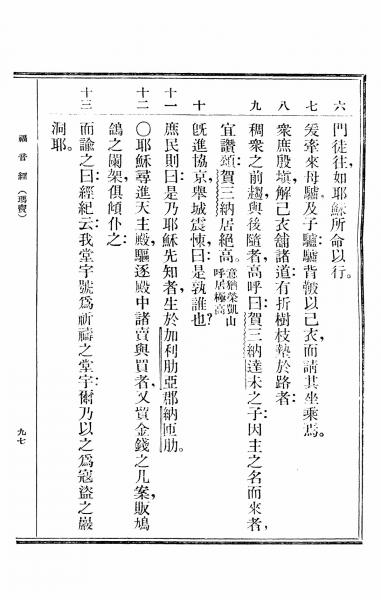 六 門徒往、如耶穌所命以行。
七 爰牽來母驢及子驢、驢背韍以己衣、而請其坐乘焉。
八 衆庶殷塡、解己衣舖諸道、有折樹枝墊於路者、
九 稠衆之前趨與後隨者、高呼曰、賀三納達未之子、因主之名而來者、
宜讚頌、賀三納居絶高、意猶榮凱山呼居極高
十 旣進協京、舉城震悚、曰、是孰誰也?
十一 庶民則曰、是乃耶穌先知者、生於加利肋亞郡納匝肋。
十二 ○耶穌尋進天主殿、驅逐殿中諸賣與買者、又買金錢之几案、販鳩
鴿之闌架、俱傾仆之、
十三 而諭之曰、經紀云、我堂宇號爲祈禱之堂宇、爾乃以之爲寇盜之巖
洞耶。
福音經 (瑪竇)
九七